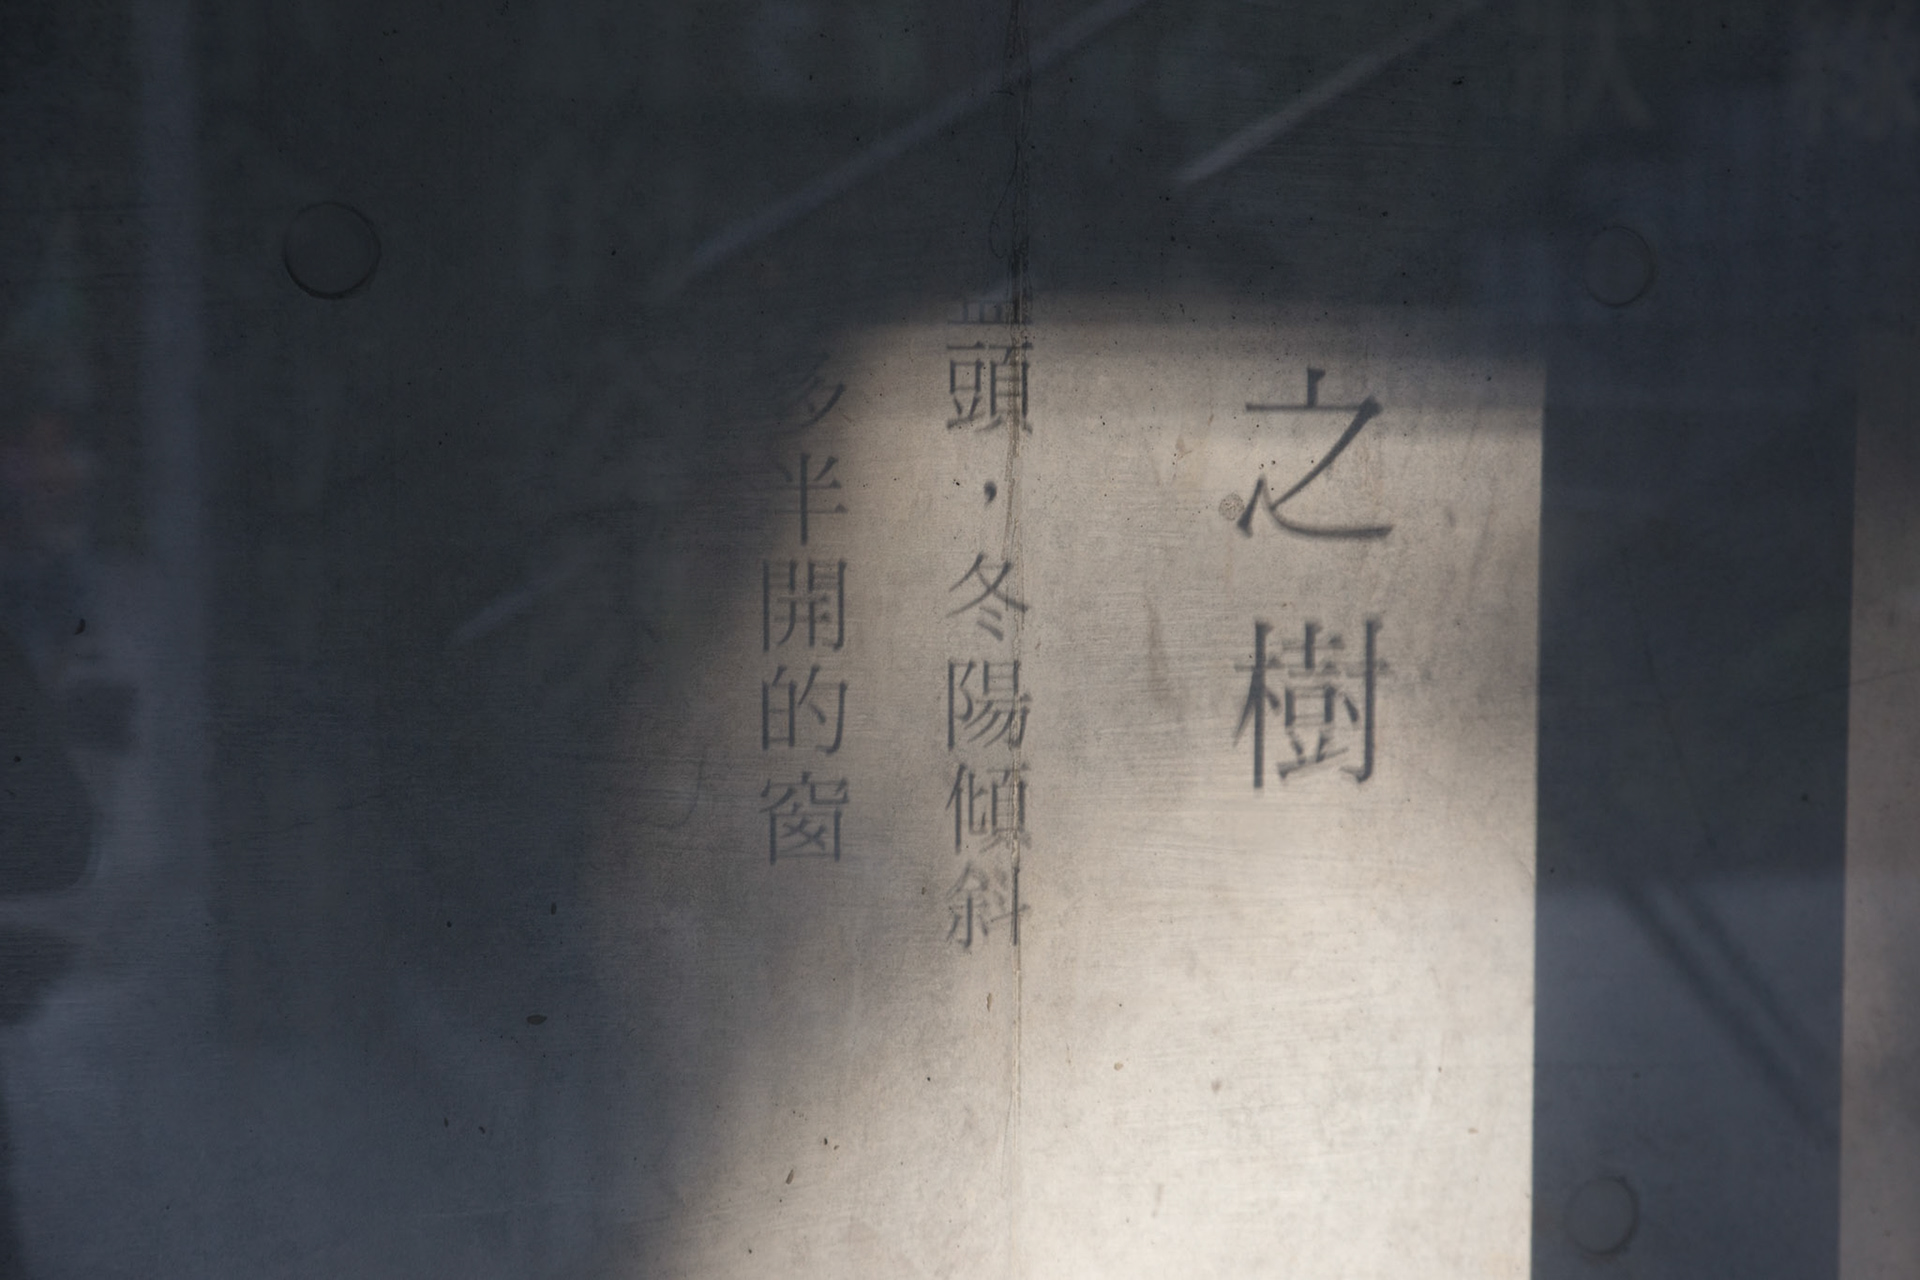 之樹
頭，冬陽傾斜
多半開的窗